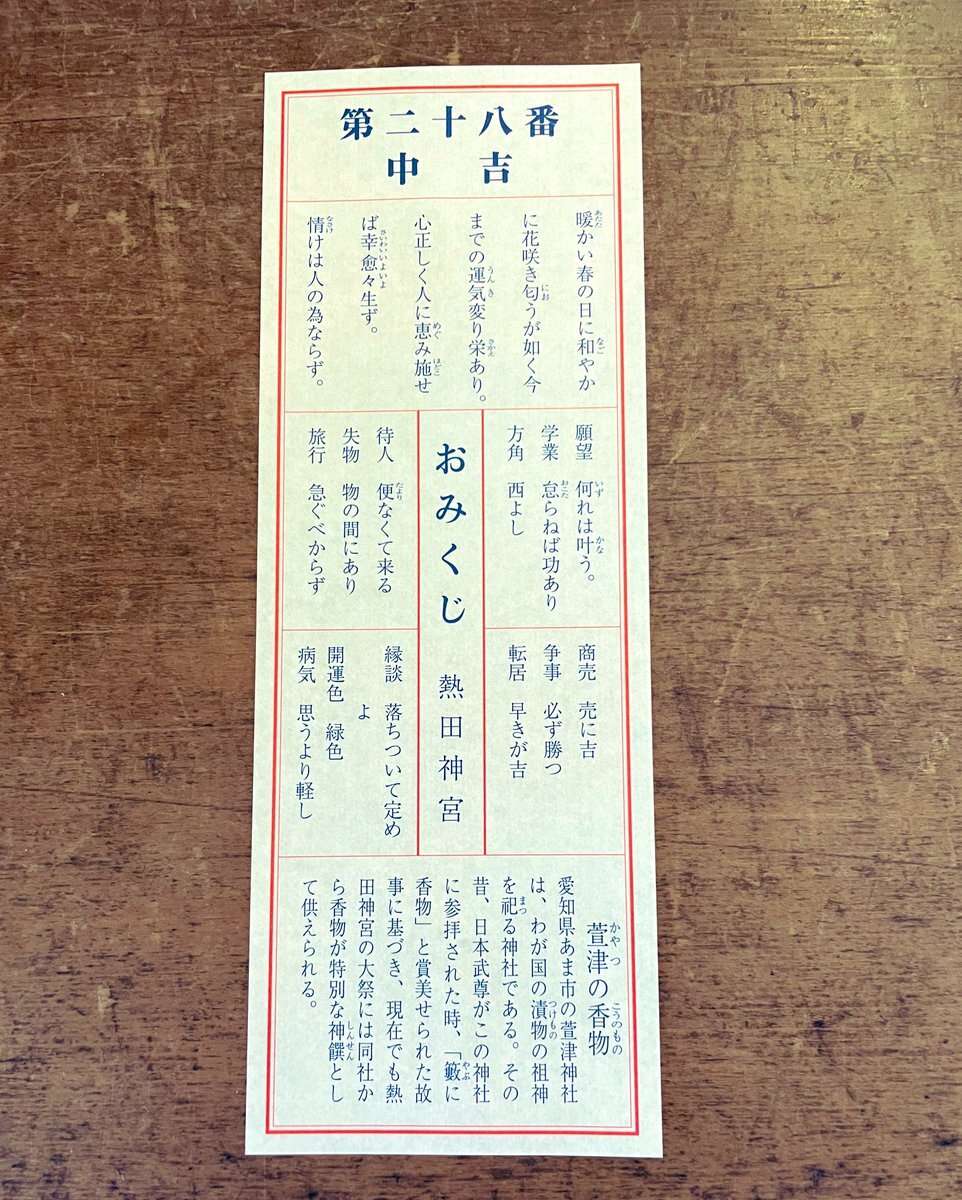 第二十八番
中吉
暖かい春の日に和やか
に花咲き匂うが如く今
までの運気変り栄あり。
心正しく人に恵み施せ
ば幸愈々生ず。
情けは人の為ならず。
願望 何れは叶う。
学業 怠らねば功あり
方角 西よし
おみくじ 熱田神宮
待人 便なくて来る
失物 物の間にあり
旅行 急ぐべからず
商売 売に吉
争事 必ず勝つ
転居 早きが吉
縁談 落ちついて定め
よ
開運色 緑色
病気 思うより軽し
萱津の香物
愛知県あま市の萱津神社
は、わが国の漬物の祖神
を祀る神社である。その
昔、日本武尊がこの神社
に参拝された時、「藪に
香物」と賞美せられた故
事に基づき、現在でも熱
田神宮の大祭には同社か
ら香物が特別な神饌とし
て供えられる。